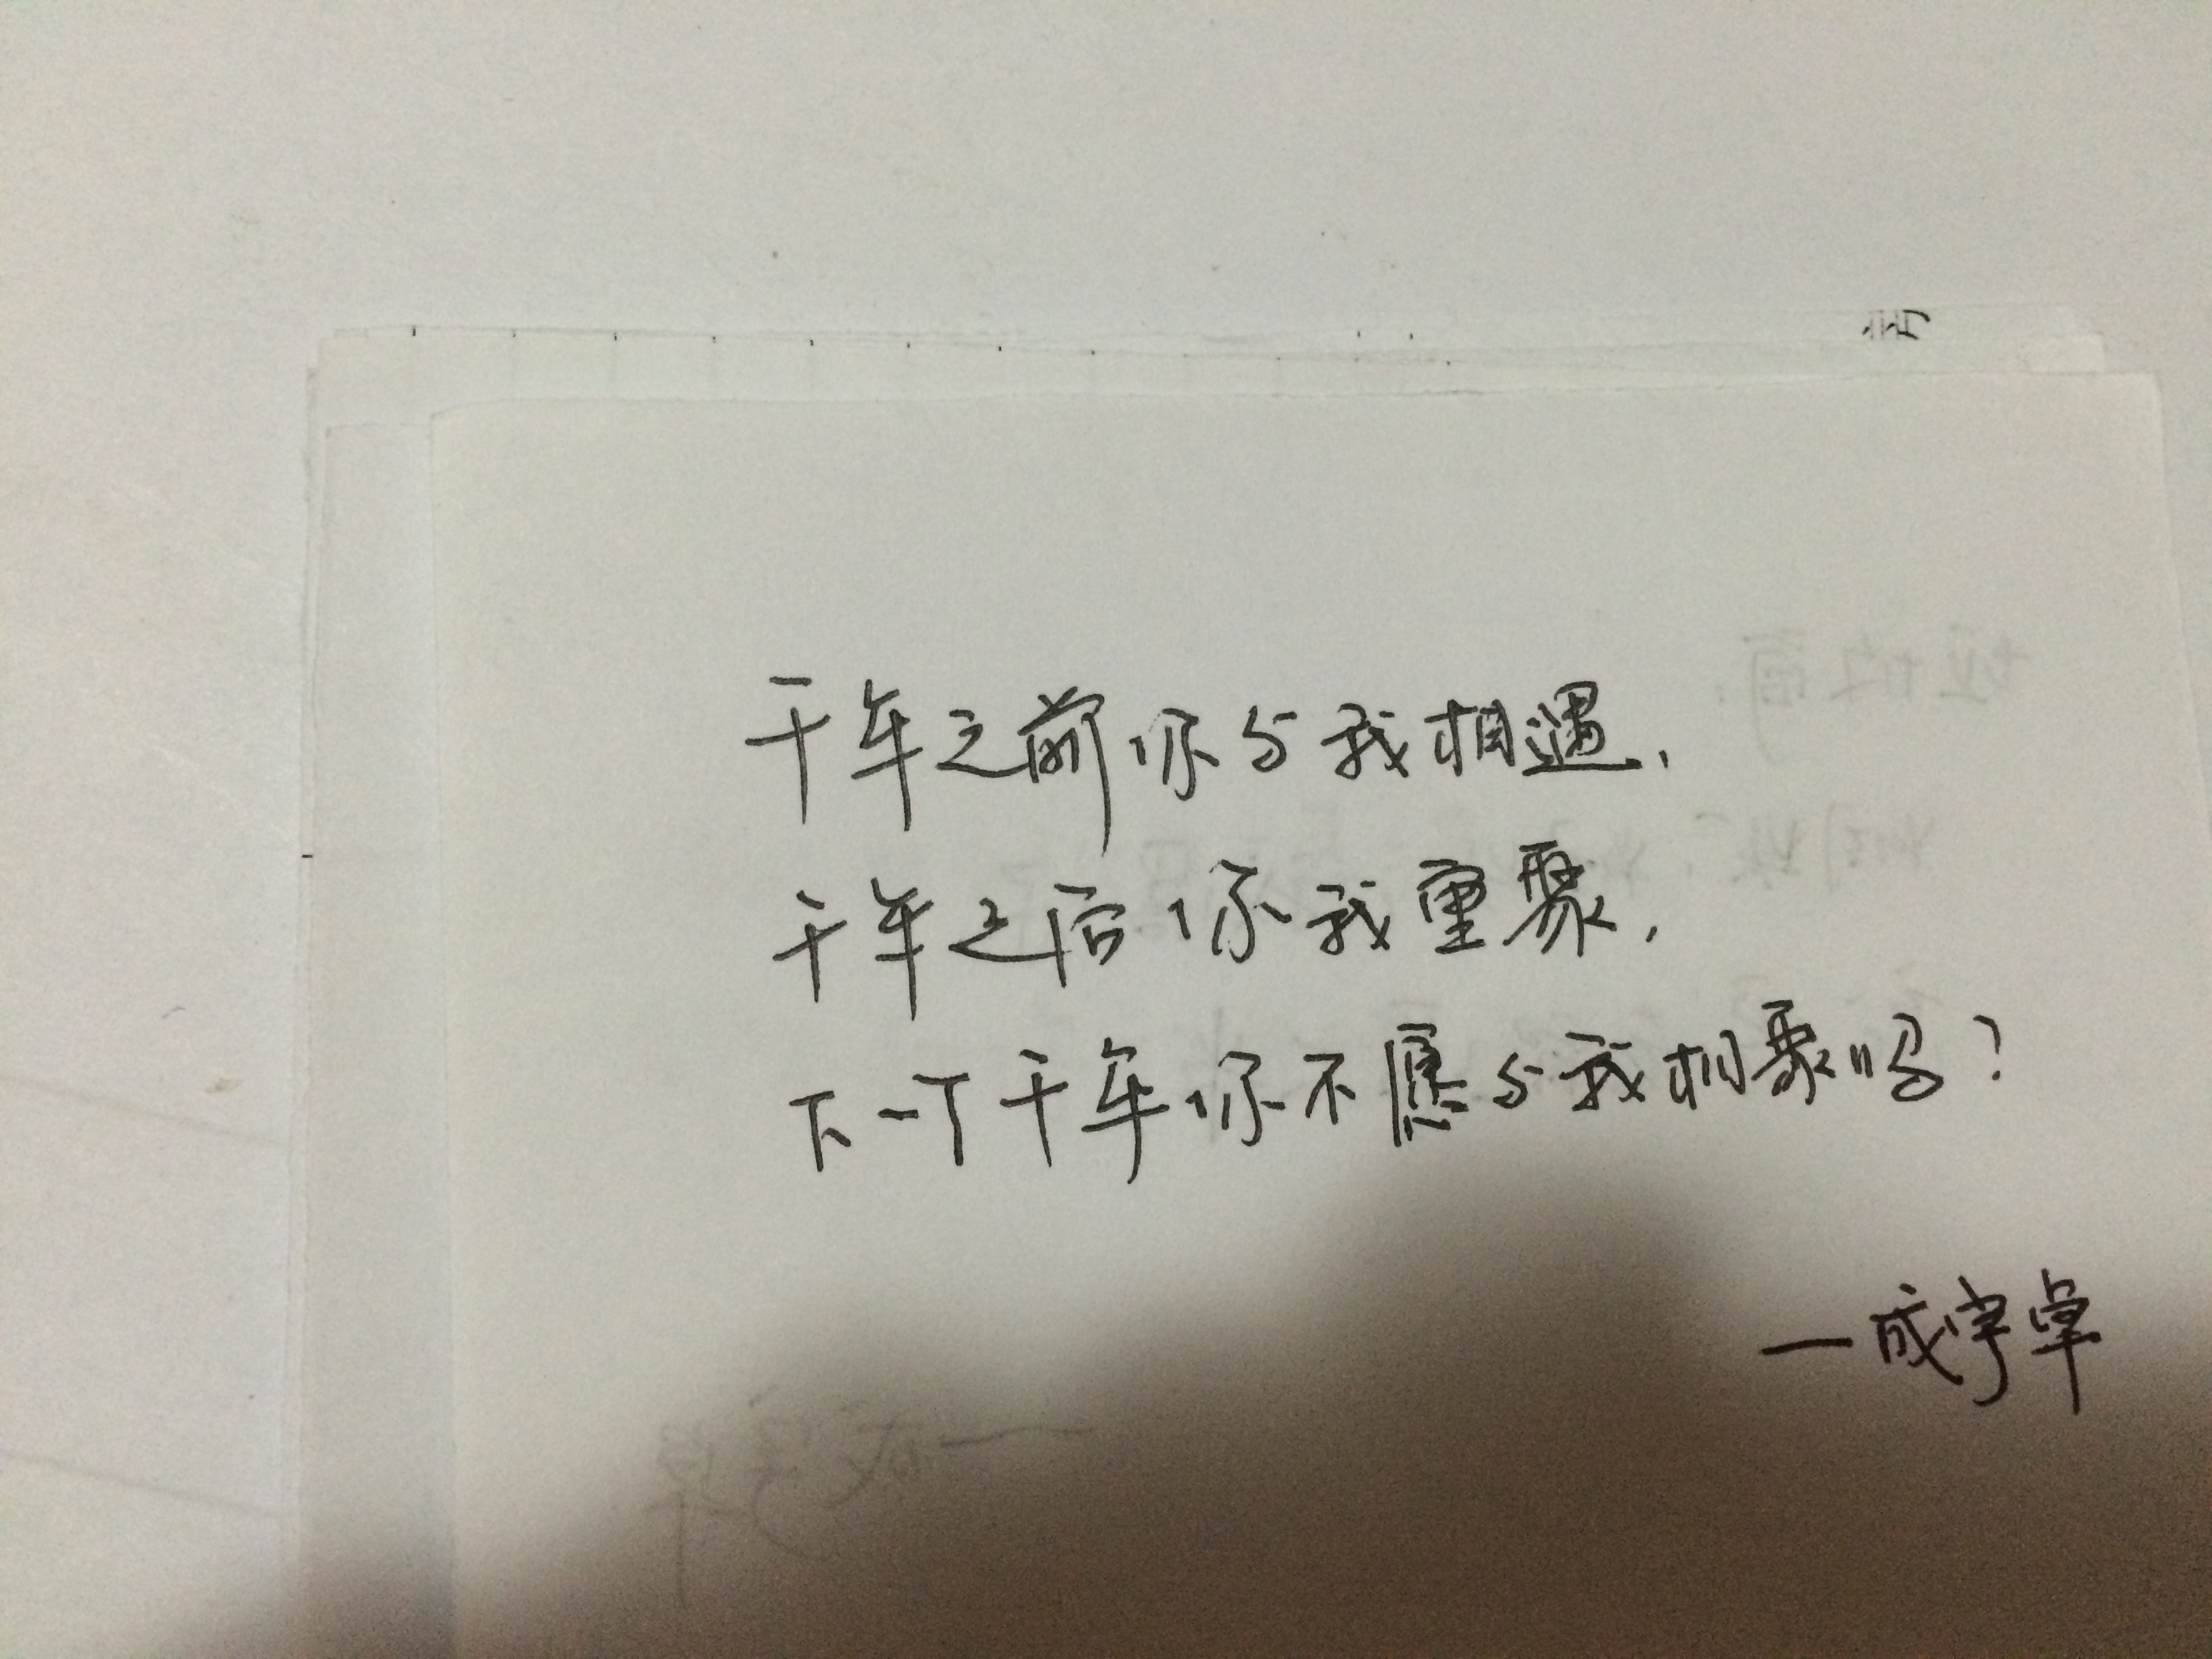 千年之前你与我相遇，
千年之后你我重聚，
下一个千年你不愿与我相聚吗？
—成宇卓